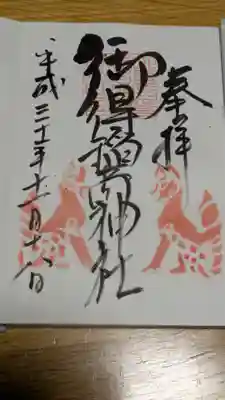 奉拝
御得稲荷神社
平成三十年十一月十八日